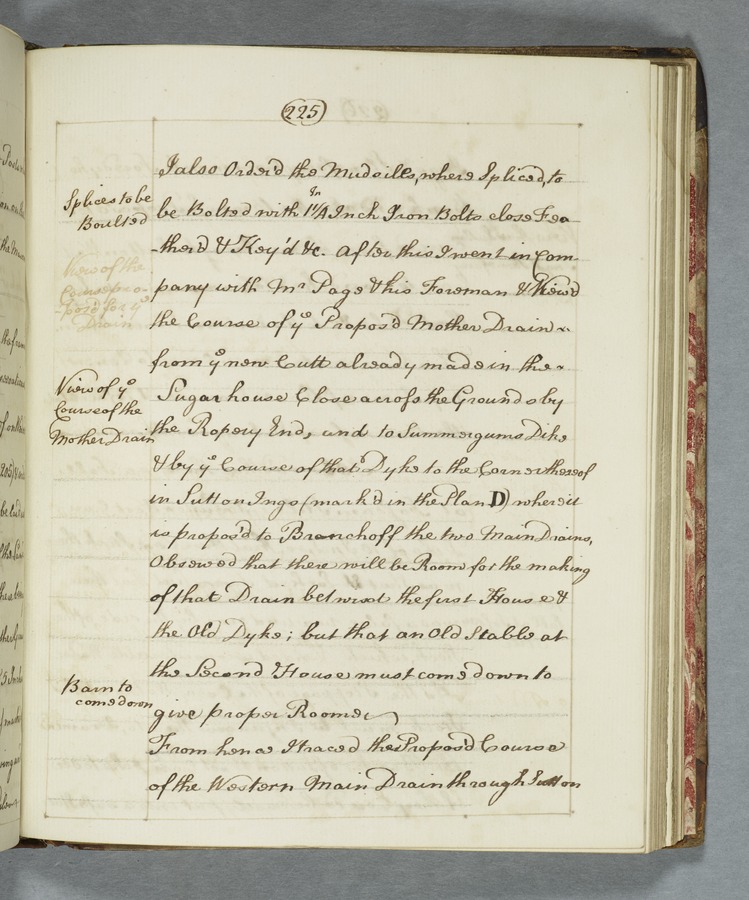 225
I also Order'd the Mudsills, where Spliced, to
Splices to be
Boulted
be Bolted with 1¼ Inch Iron Bolts close Fea
In
-ther'd & Key'd &c. After this I went in Com-
View of the
Course pro-
-pos'd for yᵉ
Drain
pany with Mʳ Page & his Foreman & View'd
the Course of yᵉ Propos'd Mother Drain
from yᵉ new Cutt already made in the
View of yᵉ
Course of the
Mother Drain
Sugar house Close across the Grounds by
the Ropery End, and to Summergums Dike
& by yᵉ Course of that Dyke to the Corner thereof
in Sutton Ings (mark'd in the Plan D) where it
is propos'd to Branch off the two Main Drains,
Observed that there will be Room for the making
of that Drain betwixt the first House &
the Old Dyke; but that an Old Stable at
the Second House must come down to
Barn to
come down
give proper Roome
From hence I traced the Propos'd Course
of the Western Main Drain through Sutton